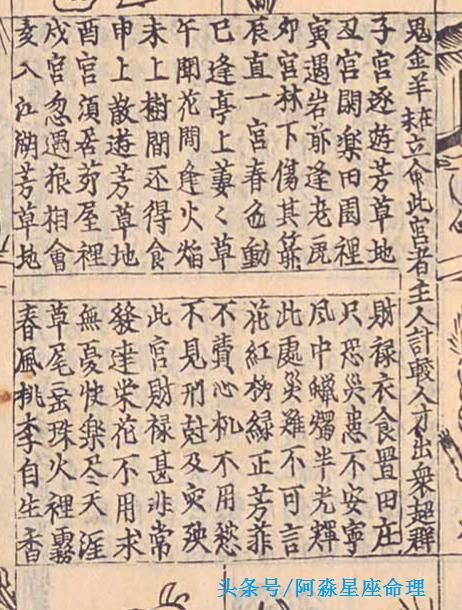 鬼金羊在未立命此宫者主人計較人才出衆超群
子宫逐遊芳草地
財禄衣食置田庄
丑宫閑樂田園裡
只恐災患不安寧
寅遇岩前逢老虎
風中蠟燭半光輝
卯宫林下傷其
此處災難不可言
辰直一宫春色動
花紅柳緑正芳菲
巳逢亭上萋〻草
不費心机不用愁
午聞花間逢火焰
不見刑尅及灾殃
未上樹間还得食
此宫財禄甚非常
申上散遊芳草地
發達荣花不用求
酉宫須居茆屋裡
無憂快樂尽天涯
戌宫忽遇狼相會
草尾珠火裡霧
亥入江湖芳草地
春風桃李自生香
头条号/阿淼星座命理